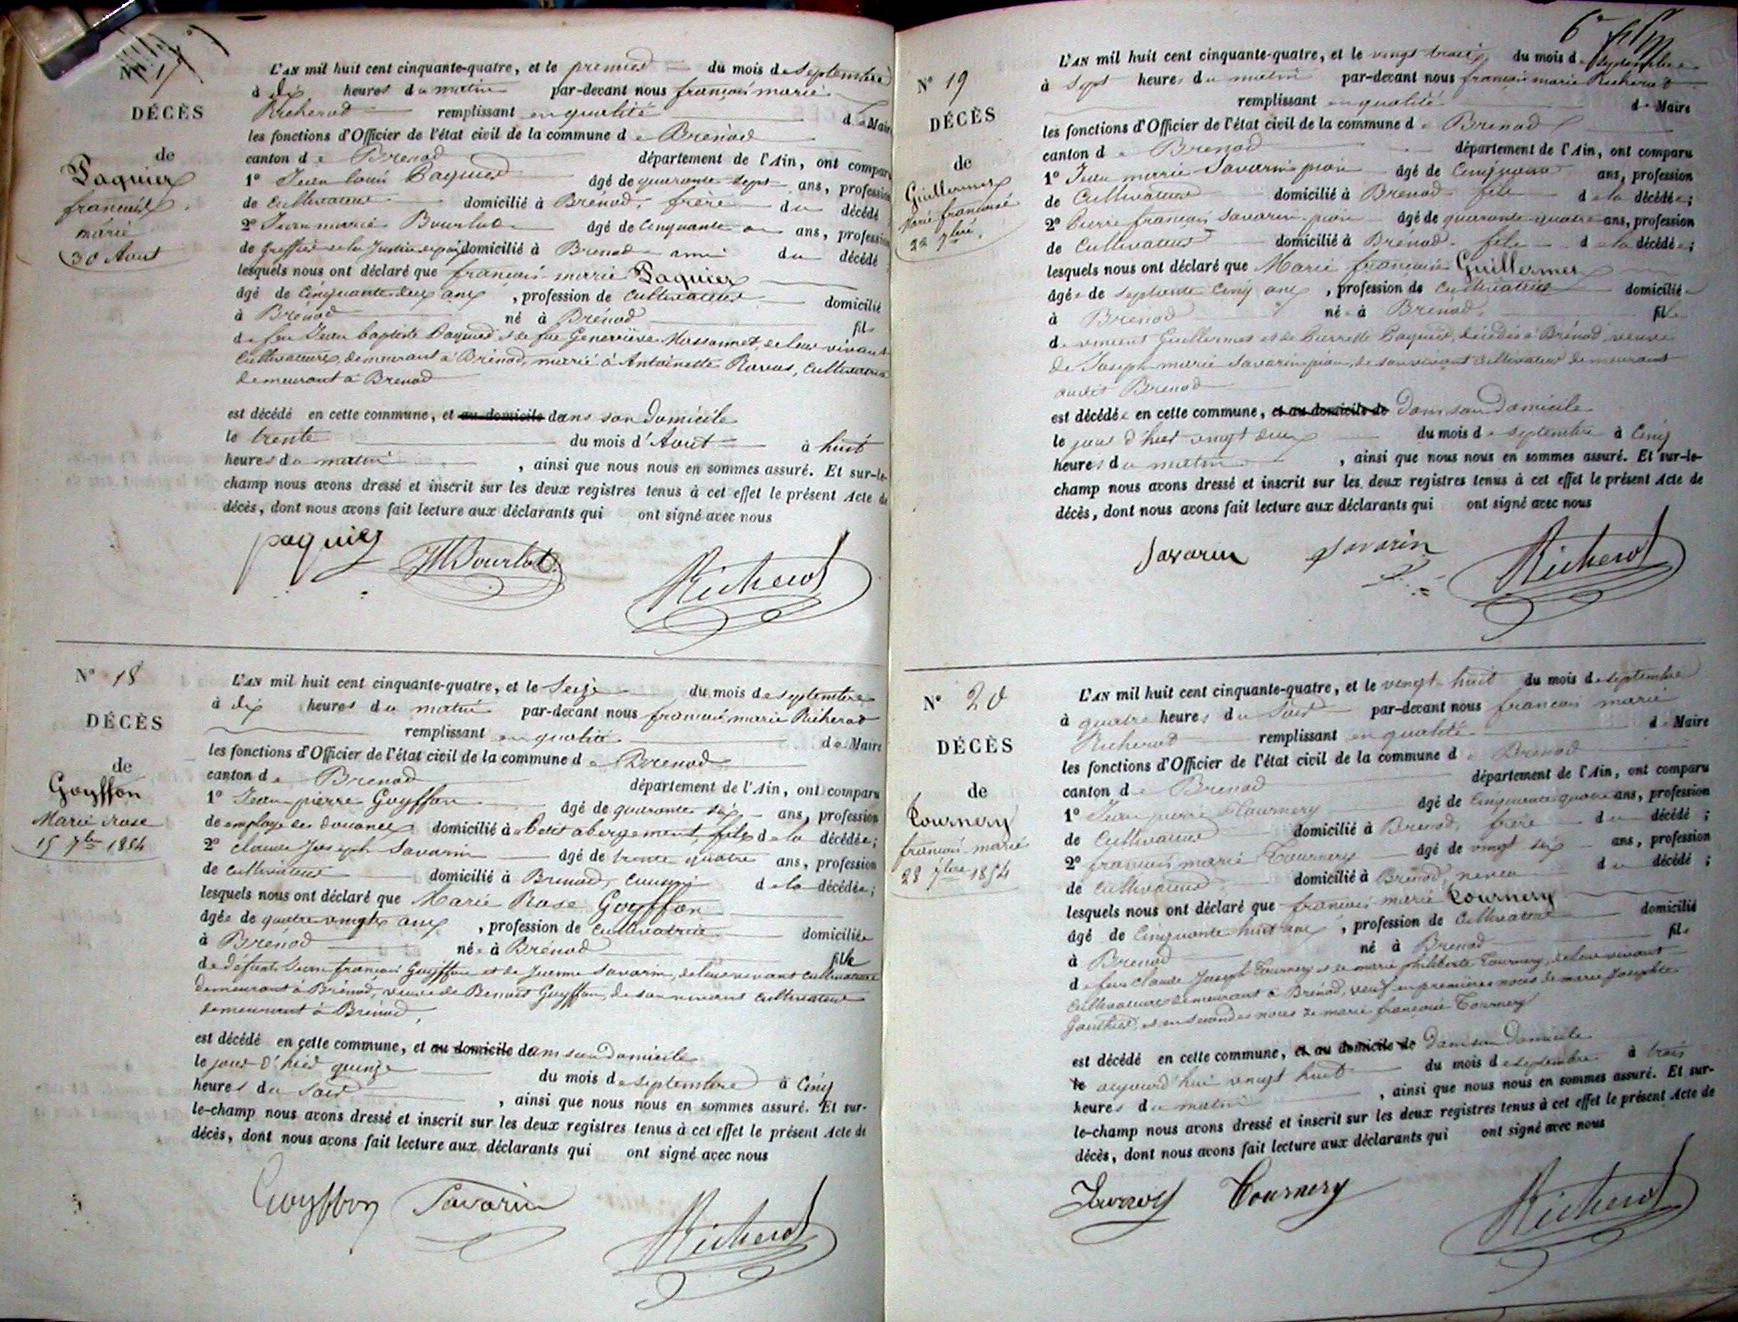 N° 17
DÉCÈS
de
Paquier
françois
marie
30 Aout
L'AN mil huit cent cinquante-quatre, et le premier du mois de septembre
à dix heures du matin par-devant nous françois marie
Richerod remplissant en qualité de Maire
les fonctions d'Officier de l'état civil de la commune de Brenod
canton de Brenod département de l'Ain, ont comparu
1° Jean louis Paquier âgé de quarante sept ans, profession
de cultivateur domicilié à Brénod, frère du décédé
2° Jean marie Bourlod âgé de cinquante un ans, profession
de greffier de la Justice de paix domicilié à Brenod ami du décédé
lesquels nous ont déclaré que françois marie Paquier
âgé de cinquante deux ans, profession de cultivateur domicilié
à Brénod né à Brénod fils
de feu Jean baptiste Paquier et de fue Geneviève Massonnet, de leur vivant
cultivateurs demeurant à Brénod, marié à Antoinette Ravas, cultivatrice
demeurant à Brenod
est décédé en cette commune, et au domicile dans son domicile
le trente du mois d'Aout à huit
heures du matin, ainsi que nous nous en sommes assuré. Et sur-le-
champ nous avons dressé et inscrit sur les deux registres tenus à cet effet le présent Acte de
décès, dont nous avons fait lecture aux déclarants qui ont signé avec nous
paquier JMBourlod Richerod
N° 18
DÉCÈS
de
Goyffon
Marie rose
15 7bre 1854
L'AN mil huit cent cinquante-quatre, et le seize du mois de septembre
à dix heures du matin par-devant nous françois marie Richerod
remplissant en qualité de Maire
les fonctions d'Officier de l'état civil de la commune de Brenod
canton de Brenod département de l'Ain, ont comparu
1° Jean pierre Goyffon âgé de quarante six ans, profession
de employé des douanes domicilié à petit abergement, fils de la décédée;
2° claude Joseph Savarin âgé de trente quatre ans, profession
de cultivateur domicilié à Brenod, cousin de la décédée;
lesquels nous ont déclaré que Marie Rose Goyffon
âgée de quatre vingts ans, profession de cultivatrice domiciliée
à Brénod née à Brénod fille
de défunts Jean françois Goyffon et de Jeanne Savarin, de leur vivant cultivateurs
demeurant à Brénod, veuve de Benoit Goyffon, de son vivant cultivateur
demeurant à Brénod,
est décédé en cette commune, et au domicile dans son domicile
le jour d'hier quinze du mois de septembre à cinq
heures du soir, ainsi que nous nous en sommes assuré. Et sur-
le-champ nous avons dressé et inscrit sur les deux registres tenus à cet effet le présent Acte de
décès, dont nous avons fait lecture aux déclarants qui ont signé avec nous
Goyffon Savarin Richerod
6e
N° 19
DÉCÈS
de
Guillermet
Marie françoise
22 7bre
L'AN mil huit cent cinquante-quatre, et le vingt trois du mois de septembre
à sept heures du matin par-devant nous françois marie Richerod
remplissant en qualité de Maire
les fonctions d'Officier de l'état civil de la commune de Brenod
canton de Brenod département de l'Ain, ont comparu
1° Jean marie Savarin pion âgé de cinquante ans, profession
de cultivateur domicilié à Brenod fils de la décédée;
2° Pierre françois savarin-pion âgé de quarante quatre ans, profession
de cultivateur domicilié à Brenod. fils de la décédée;
lesquels nous ont déclaré que Marie françoise Guillermet
âgée de septante cinq ans, profession de cultivateur domiciliée
à Brenod née à Brénod. fille
de vincent Guillermet et de Pierrette Paquier, décédés à Brénod, veuve
de Joseph marie Savarin pion, de son vivant cultivateur demeurant
audit Brenod
est décédée en cette commune, et au domicile de dans son domicile
le jour d'hier vingt deux du mois de septembre à cinq
heures du matin, ainsi que nous nous en sommes assuré. Et sur-le-
champ nous avons dressé et inscrit sur les deux registres tenus à cet effet le présent Acte de
décès, dont nous avons fait lecture aux déclarants qui ont signé avec nous
Savarin savarin Richerod
N° 20
DÉCÈS
de
Tournery
francois marie
28 7bre 1854
L'AN mil huit cent cinquante-quatre, et le vingt-huit du mois de septembre
à quatre heures du soir par-devant nous francois marie
Richerod remplissant en qualité de Maire
les fonctions d'Officier de l'état civil de la commune de Brenod
canton de Brenod département de l'Ain, ont comparu
1° Jean pierre Tournery âgé de cinquante quatre ans, profession
de cultivateur domicilié à Brenod, frère du décédé;
2° francois marie Tournery âgé de vingt six ans, profession
de cultivateur domicilié à Brenod, neveu du décédé;
lesquels nous ont déclaré que francois marie Tournery
âgé de cinquante huit ans, profession de cultivateur domicilié
à Brenod né à Brenod fils
de feu claude Joseph Tournery et de marie philiberte Tournery, de leur vivant
cultivateurs demeurant à Brénod, veuf en premières noces de marie Josephte
Gauthier, et en secondes noces de marie françoise Tournery
est décédé en cette commune, et au domicile de dans son domicile
le aujourd'hui vingt huit du mois de septembre à trois
heures du matin, ainsi que nous nous en sommes assuré. Et sur-
le-champ nous avons dressé et inscrit sur les deux registres tenus à cet effet le présent Acte de
décès, dont nous avons fait lecture aux déclarants qui ont signé avec nous
Tournery Richerod